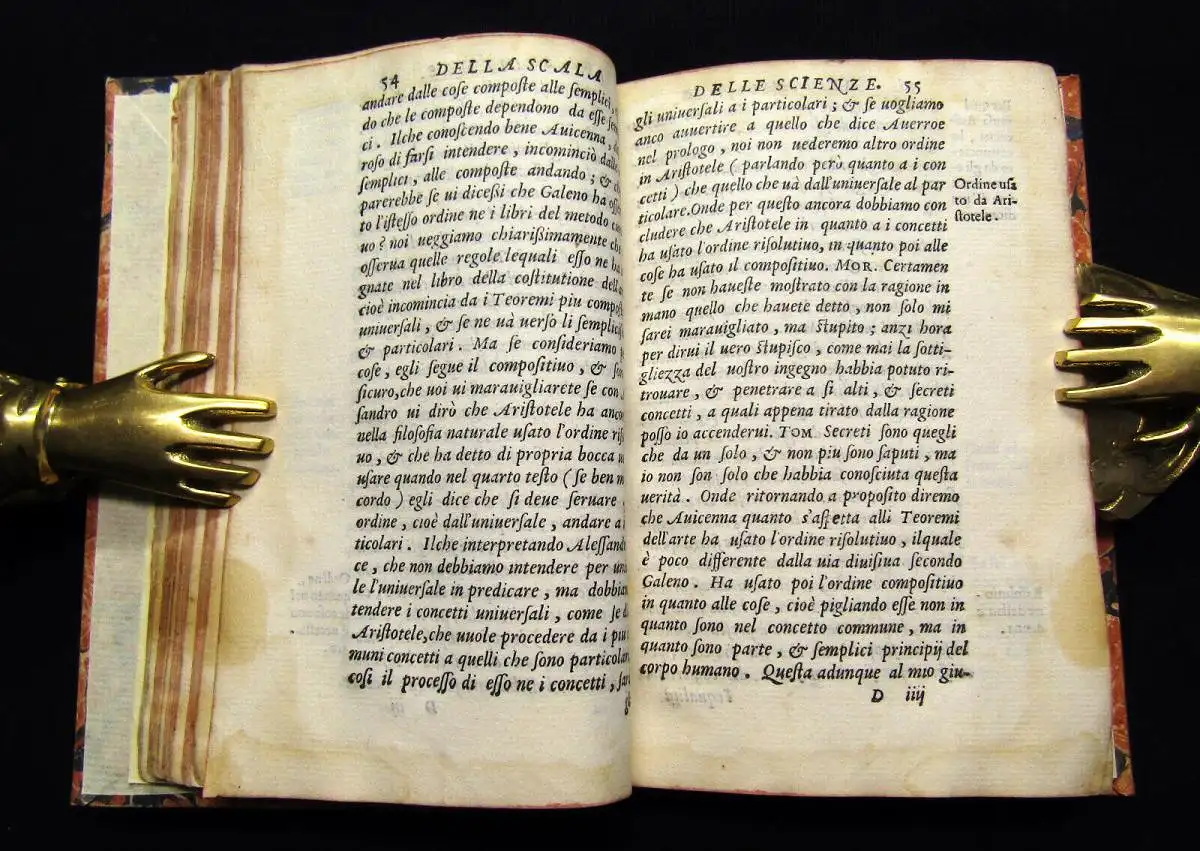 54 DELLA SCALA
andare dalle cose composte alle semplici,
do che le composte dependono da esse
ci. Ilche conoscendo bene Auicenna,
roso di farsi intendere, incominciò dalle
semplici, alle composte andando; &
parerebbe se ui dicessi che Galeno ha
to l'istesso ordine ne i libri del metodo
uo? noi ueggiamo chiarissimamente che
osserua quelle regole lequali esso ne ha
gnate nel libro della costitutione dell'
cioè incomincia da i Teoremi piu
uniuersali, & se ne uà uerso li
& particolari. Ma se consideriamo
cose, egli segue il compositiuo, &
sicuro, che uoi ui marauigliarete se con
sandro ui dirò che Aristotele ha
nella filosofia naturale usato l'ordine
uo, & che ha detto di propria bocca
usare quando nel quarto testo (se ben
cordo) egli dice che si deue seruare
ordine, cioè dall'uniuersale, andare a
ticolari. Ilche interpretando
ce, che non debbiamo intendere per
le l'uniuersale in predicare, ma
tendere i concetti uniuersali, come
Aristotele, che uuole procedere da i
muni concetti a quelli che sono
cosi il processo di esso ne i concetti,
DELLE SCIENZE. 55
gli uniuersali a i particolari; & se uogliamo
anco auuertire a quello che dice Auerroe
nel prologo, noi non uederemo altro ordine
in Aristotele (parlando però quanto a i con
cetti) che quello che uà dall'uniuersale al par
ticolare. Onde per questo ancora dobbiamo con
cludere che Aristotele in quanto a i concetti
ha usato l'ordine risolutiuo, in quanto poi alle
cose ha usato il compositiuo. MOR. Certamen
te se non haueste mostrato con la ragione in
mano quello che hauete detto, non solo mi
sarei marauigliato, ma stupito; anzi hora
per dirui il uero stupisco, come mai la sotti-
gliezza del uostro ingegno habbia potuto ri-
trouare, & penetrare a si alti, & secreti
concetti, a quali appena tirato dalla ragione
posso io accenderui. TOM Secreti sono quegli
che da un solo, & non piu sono saputi, ma
io non son solo che habbia conosciuta questa
uerità. Onde ritornando a proposito diremo
che Auicenna quanto s'aspetta alli Teoremi
dell'arte ha usato l'ordine risolutiuo, ilquale
è poco differente dalla uia diuisiua secondo
Galeno. Ha usato poi l'ordine compositiuo
in quanto alle cose, cioè pigliando esse non in
quanto sono nel concetto commune, ma in
quanto sono parte, & semplici principij del
corpo humano. Questa adunque al mio giu-
D iiij
Ordine usa
to da Ari-
stotele.